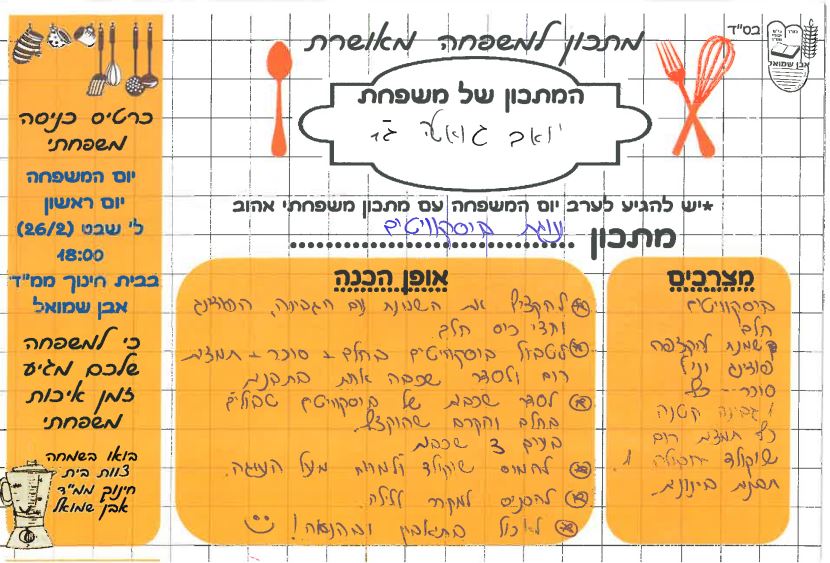 בס"ד
אבן שמואל
מתכון למשפחה מאושרת
המתכון של משפחת
יואב
*יש להגיע לערב יום המשפחה עם מתכון משפחתי אהוב
מתכון עוגת ביסקוויטים
מצרכים
ביסקוויטים
חלב
שמנת להקצפה
פודינג וניל
סוכר
גבינה קטנה
תמצית רום
שוקולד
תבנית בינונית.
אופן הכנה
להקציף את השמנת עם הגבינה, הפודינג
וחצי כוס חלב
לטבול ביסקוויטים בחלב + סוכר + תמצית
רום ולסדר שכבה אחת בתבנית
לסדר שכבת של ביסקוויטים טבולים
בחלב והקרם שהוקצף.
3 שכבות
לחמם שוקולד ולמרוח מעל העוגה.
להכניס למקרר ללילה.
לאכול בתאבון ובהנאה!
כרטיס כניסה
משפחתי
יום המשפחה
יום ראשון
ל' שבט (26/2)
18:00
בבית חינוך ממ"ד
אבן שמואל
כי למשפחה
שלכם מגיע
זמן איכות
משפחתי
בואו בשמחה
צוות בית
חינוך ממ"ד
אבן שמואל